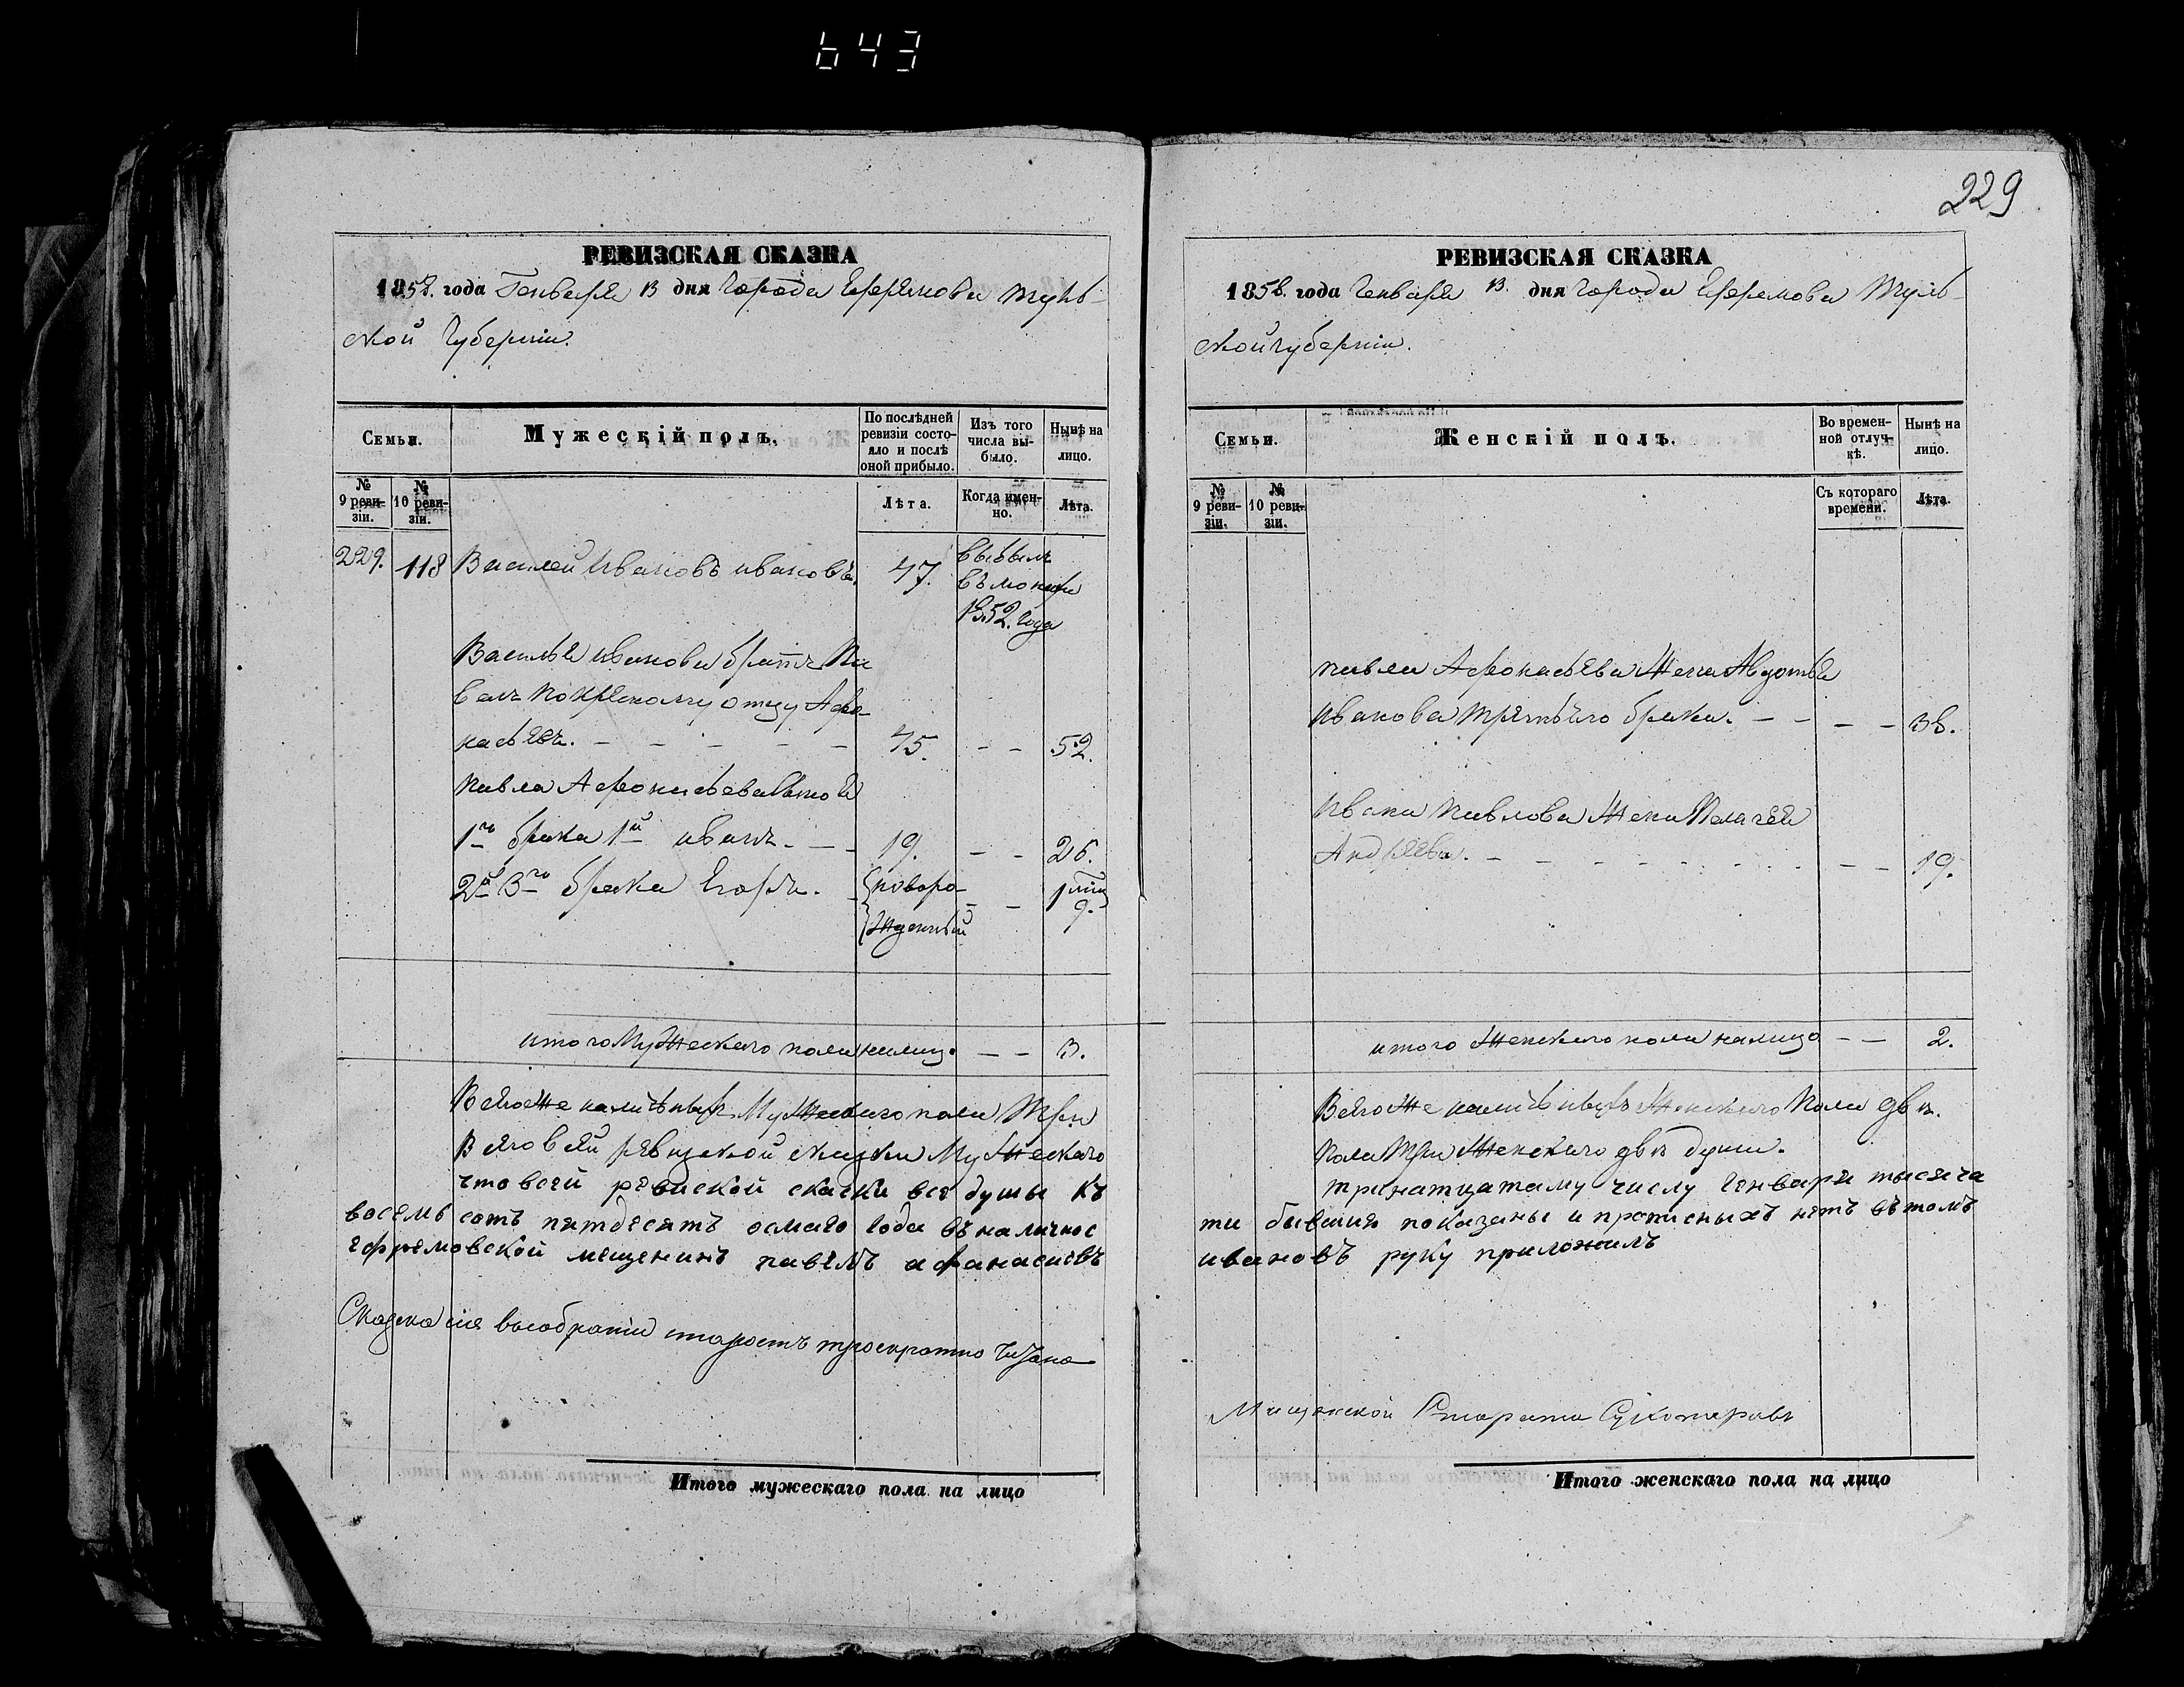 643
229
РЕВИЗСКАЯ СКАЗКА
1858. года Генваря 13 дня Города Ефремова Туль-
ской Губернiи.
Семьи.
Мужескій полъ.
По послѣдней ревизіи состояло и послѣ оной прибыло.
Изъ того числа выбыло.
Нынѣ на лицо.
№ 9 ревизіи.
№ 10 ревизіи.
Лѣта.
Когда именно.
Лѣта.
229. 118 Василей Ивановъ ивановъ. 47.
1852. года
Василья иванова братъ Па
велъ по крёсному отцу Афо
насьевъ. — — — — — 45. — — 52.
Павла Афонасьева сыновья
1го брака 1й иванъ. — — 19. — — 26.
2й 3го брака Егоръ. — новоро — — 1
жденный 9.
итого Мужескаго пола налицо. — — 3.
Всего же наличныхъ Мужескаго пола Три
Всего в сей ревизской скаски Мужескаго
что всей ревиской скаски все душы къ
восемьсотъ пятдесятъ осмаго года въ наличнос
ефремовской мещенинъ павелъ афанасиевъ
Сказка сія въ собраніи старостъ троекратно читана
Итого мужескаго пола на лицо
РЕВИЗСКАЯ СКАЗКА
1858. года Генваря 13. дня Города Ефремова Туль-
ской губернiи.
Семьи.
Женскій полъ.
Во временной отлучкѣ.
Нынѣ на лицо.
№ 9 ревизіи.
№ 10 ревизіи.
Съ котораго времени.
Лѣта.
павла Афонасьева Жена Авдотья
Иванова третьяго брака. — — — — 38.
Ивана Павлова Жена Пелагея
Андреева. — — — — — 19.
итого Женскаго пола налицо — — 2.
Всего же наличныхъ Женскаго Пола двѣ.
Пола Три Женскаго двѣ души.
тринатцатаму числу генваря тысяча
ти бывшия показаны и прописныхъ нетъ въ томъ
ивановъ руку приложилъ
Мещанской Староста
Итого женскаго пола на лицо